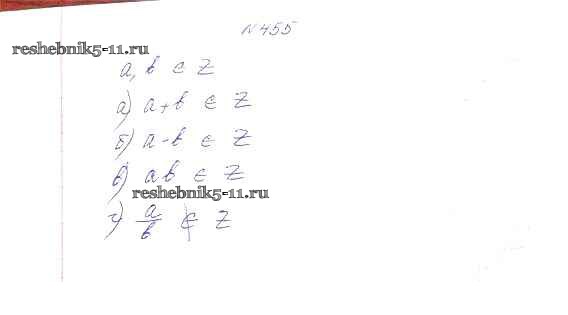 №455
reshebnik5-11.ru
a, b ∈ Z
а) a+b ∈ Z
б) a-b ∈ Z
в) ab ∈ Z
reshebnik5-11.ru
г) a/b ∉ Z